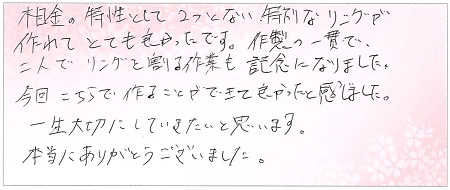 木目金の特性として2つとない特別なリングが
作れてとても良かったです。作製の一貫で、
二人でリングを割る作業も記念になりました。
今回こちらで作ることができて良かったと感じました。
一生大切にしていきたいと思います。
本当にありがとうございました。